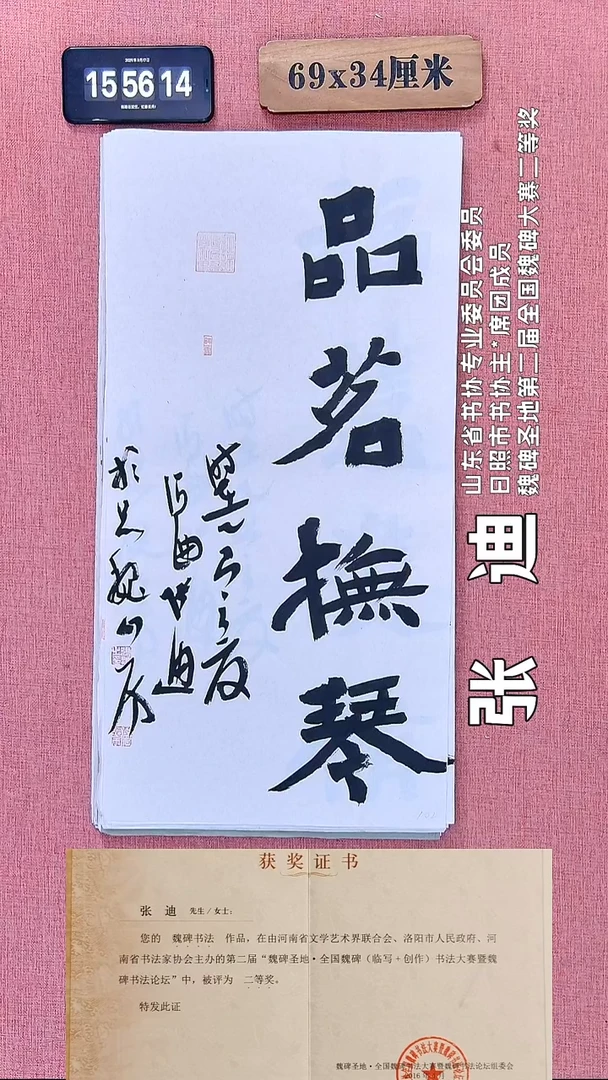 15 56 14
69x34厘米
品茗撫琴
山东省书协专业委员会委员
日照市书协主*席团成员
魏碑圣地第二届全国魏碑大赛二等奖
张 迪
获奖证书
张 迪 先生/女士:
您的 魏碑书法 作品，在由河南省文学艺术界联合会、洛阳市人民政府、河
南省书法家协会主办的第二届“魏碑圣地·全国魏碑（临写+创作）书法大赛暨魏
碑书法论坛”中，被评为 二等奖。
特发此证
魏碑圣地·全国魏碑书法大赛暨魏碑书法论坛组委会